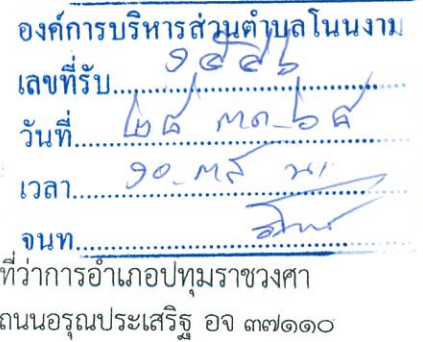 องค์การบริหารส่วนตำบลโนนงาม
เลขที่รับ
วันที่ ๒๘ ตค ๖๘
เวลา ๑๐ น.
จนท.
ที่ว่าการอำเภอปทุมราชวงศา
ถนนอรุณประเสริฐ อจ ๓๗๑๑๐